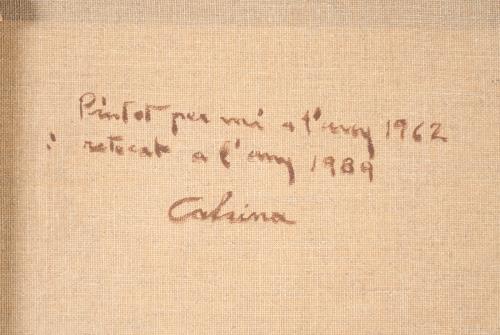 Pintot per mi a l'any 1962
i retocat a l'any 1989
Calsina